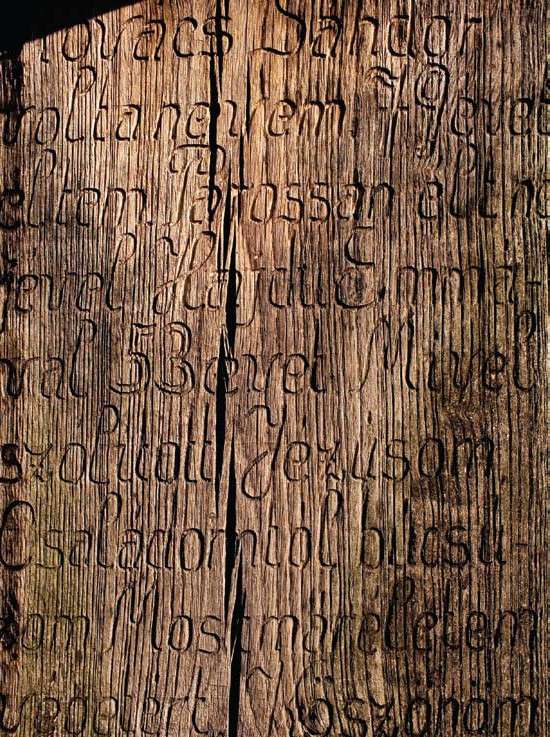 Kovács Sándor
voltam nevem. 79 évet
éltem. Párossan élt
jével Hajdu Emma-
val 53 évet Mivel
szolitott Jézusom.
Családomtol búcsu-
zom Most már életem
végetért. Köszönöm